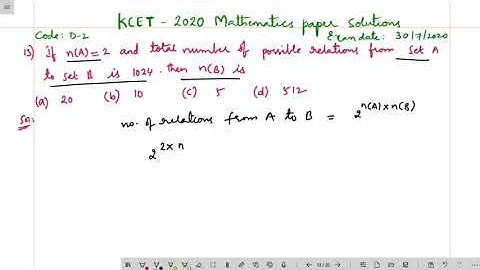 KCET - 2020 Mathematics paper solutions
Code: D-2 Exam date: 30/7/2020
13) If n(A) = 2 and total number of possible relations from set A
to set B is 1024. then n(B) is
(a) 20 (b) 10 (c) 5 (d) 512
Sol:
no. of relations from A to B = 2^{n(A) x n(B)}
2^{2 x n}